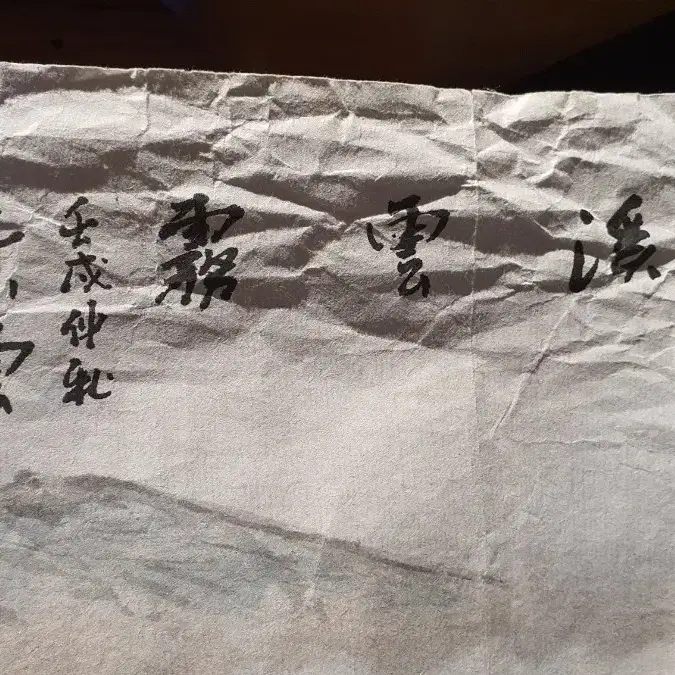 溪雲霧
壬戌仲秋